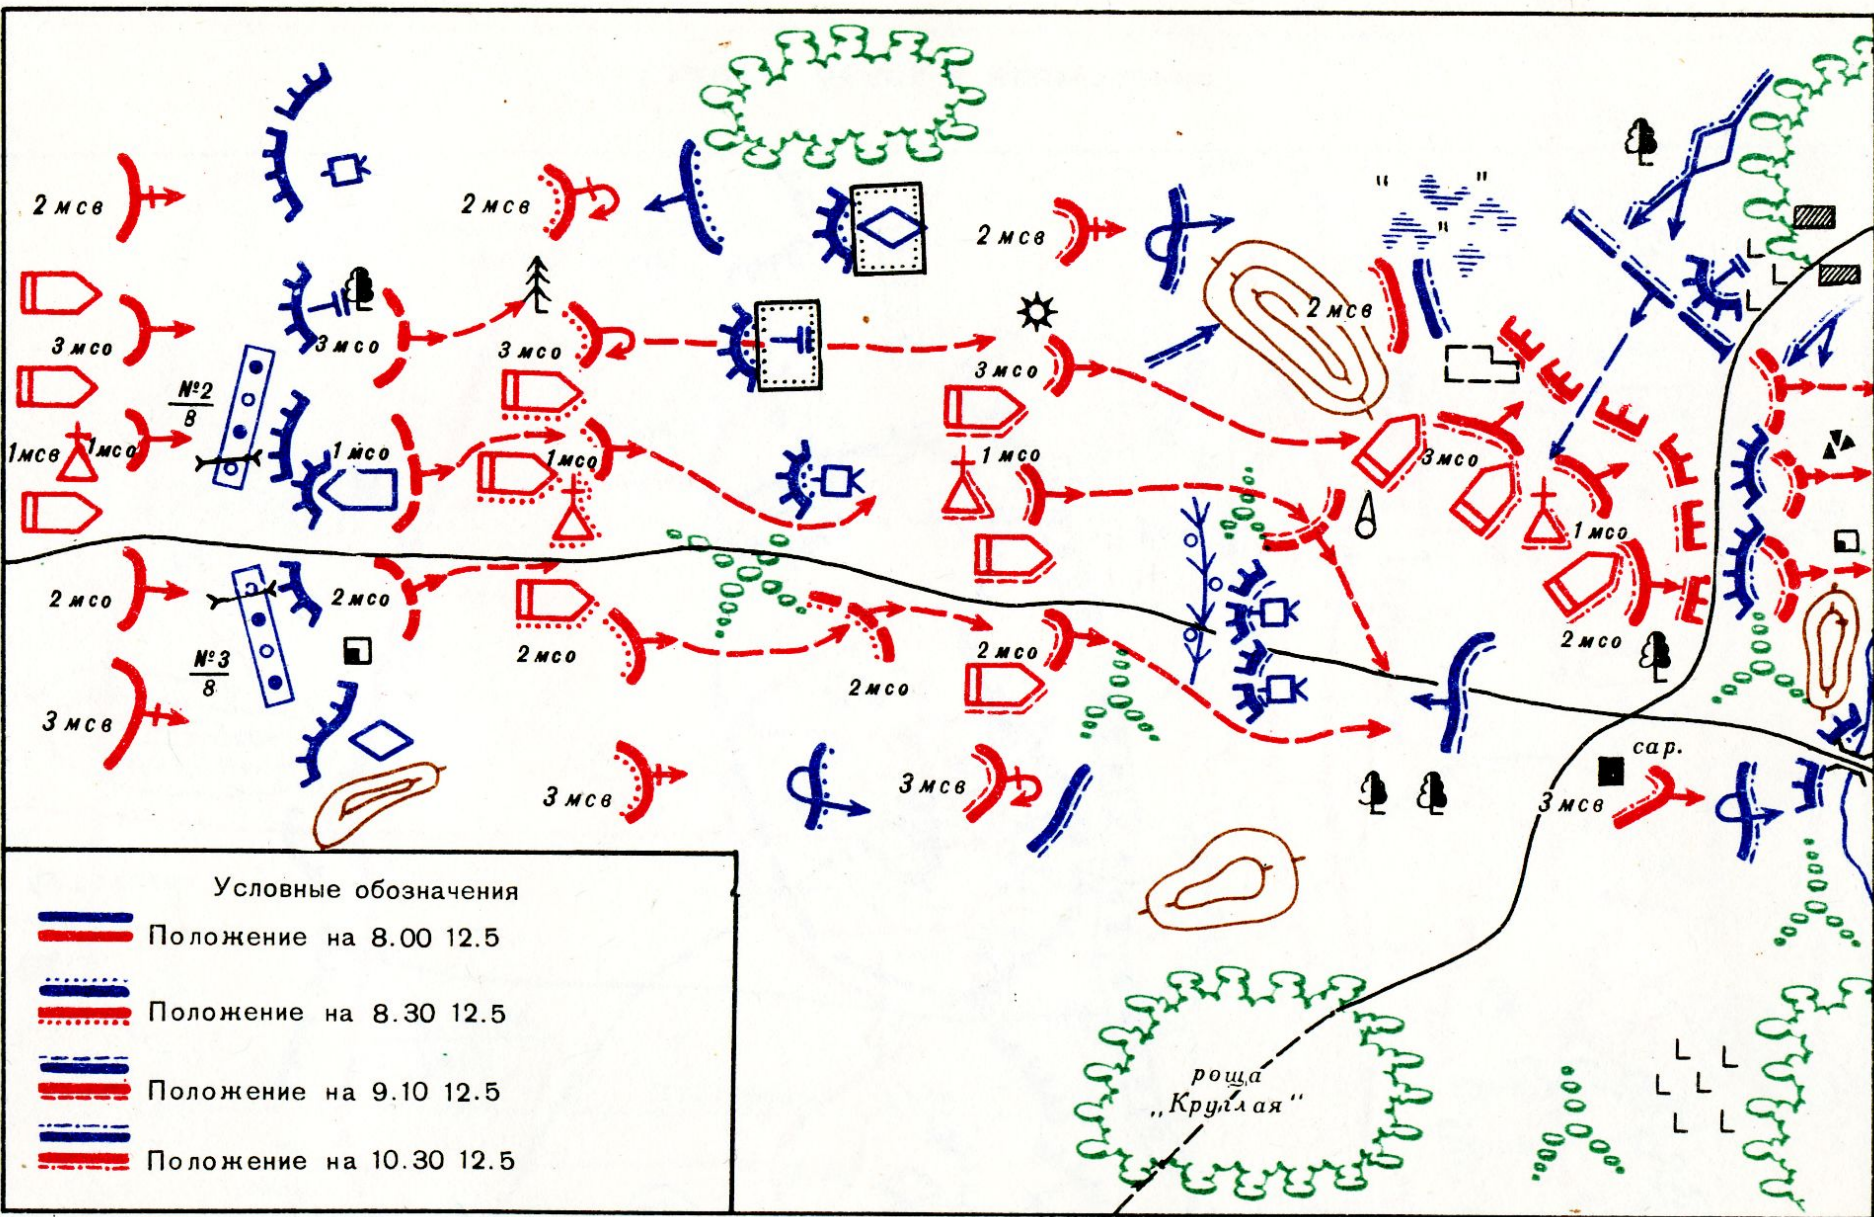 2 мсв
2 мсв
2 мсв
2 мсв
3 мсо
3 мсо
3 мсо
3 мсо
№2
8
1 мсв
1 мсо
1 мсо
1 мсо
1 мсо
3 мсо
1 мсо
2 мсо
2 мсо
2 мсо
2 мсо
2 мсо
2 мсо
№3
8
3 мсв
3 мсв
3 мсв
3 мсв
сар.
Условные обозначения
Положение на 8.00 12.5
Положение на 8.30 12.5
Положение на 9.10 12.5
Положение на 10.30 12.5
роща
„Круглая“